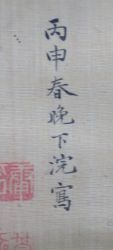 丙申春晚下浣寫